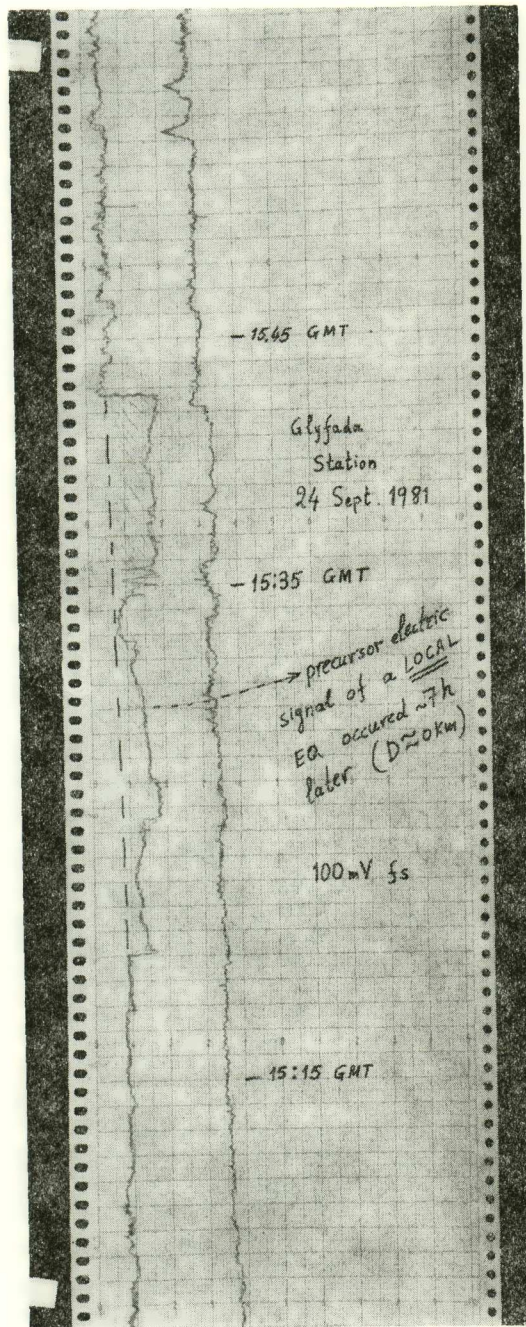 – 15.45 GMT
Glyfada
Station
24 Sept. 1981
– 15:35 GMT
precursor electric
signal of a LOCAL
EQ occured ~7h
later (D≈0km)
100mV fs
– 15:15 GMT